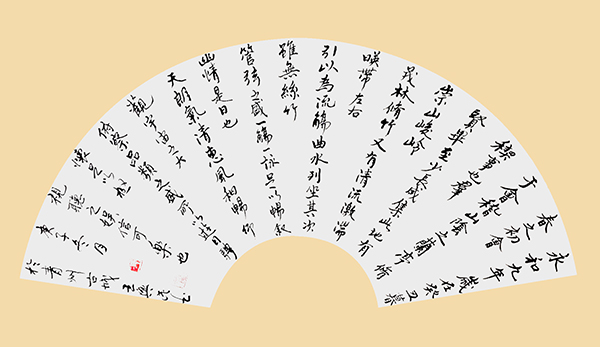 永和九年歲在癸丑暮
春之初會
于會稽山陰之蘭亭脩
禊事也群
賢畢至少長咸集此地有
崇山峻岭
茂林脩竹又有清流激湍
暎帶左右
引以為流觴曲水列坐其次
雖無絲竹
管弦之盛一觴一詠足以暢敘
幽情是日也
天朗氣清惠風和暢仰
觀宇宙之大
俯察品類之盛可以遊目騁
懷足以極
視聽之娛信可樂也
於青州古城